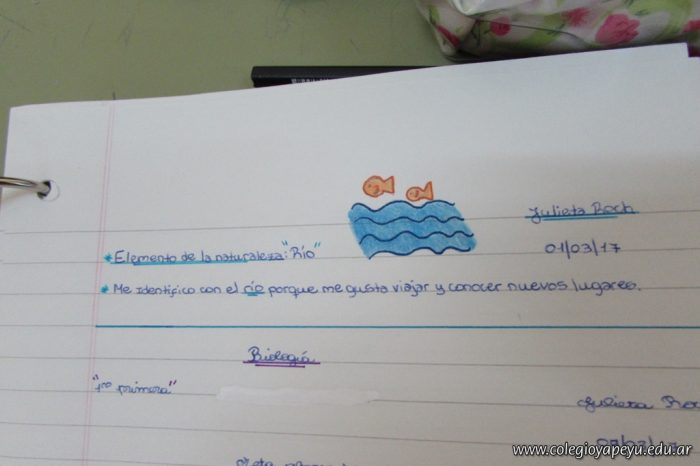 Julieta Roch
* Elemento de la naturaleza: "Río"
01/03/17
* Me identifico con el río porque me gusta viajar y conocer nuevos lugares.
Biología
"1ro primera"
Julieta
www.colegioyapeyu.edu.ar